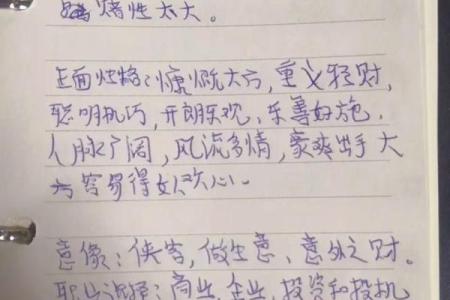 赌性太大。
正面性格：慷慨大方，重义轻财，
聪明机巧，开朗乐观、乐善好施，
人脉广阔，风流多情，豪爽出手大
方容易得奴欢心。
意像：侠客，做生意、意外之财。
职业选择：商业，企业，投资和投机